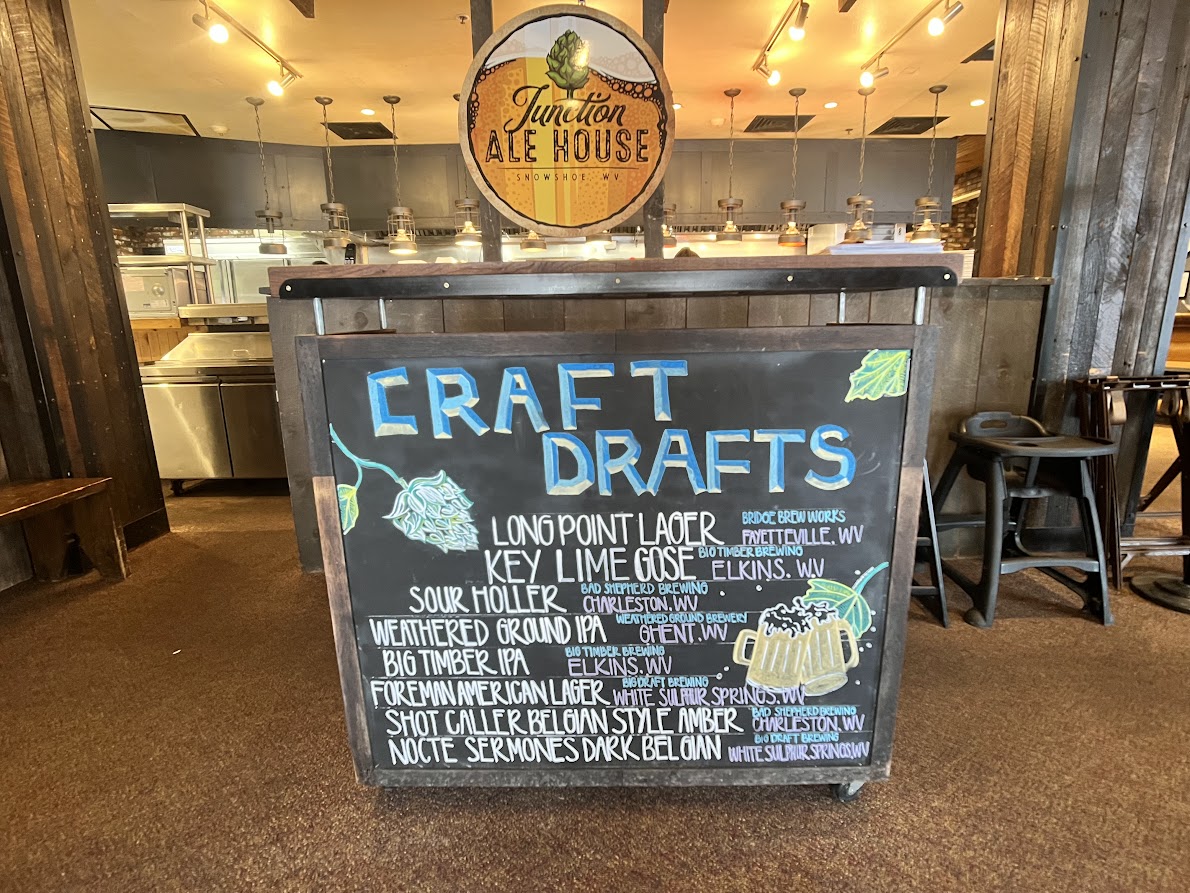 Junction
ALE HOUSE
SNOWSHOE, WV
CRAFT
DRAFTS
LONG POINT LAGER BRIDGE BREW WORKS FAYETTEVILLE, WV
KEY LIME GOSE BIG TIMBER BREWING ELKINS, WV
SOUR HOLLER BAD SHEPHERD BREWING CHARLESTON, WV
WEATHERED GROUND IPA WEATHERED GROUND BREWERY GHENT, WV
BIG TIMBER IPA BIG TIMBER BREWING ELKINS, WV
FOREMAN AMERICAN LAGER BIG DRAFT BREWING WHITE SULPHUR SPRINGS, WV
SHOT CALLER BELGIAN STYLE AMBER BAD SHEPHERD BREWING CHARLESTON, WV
NOCTE SERMONES DARK BELGIAN BIG DRAFT BREWING WHITE SULPHUR SPRINGS, WV